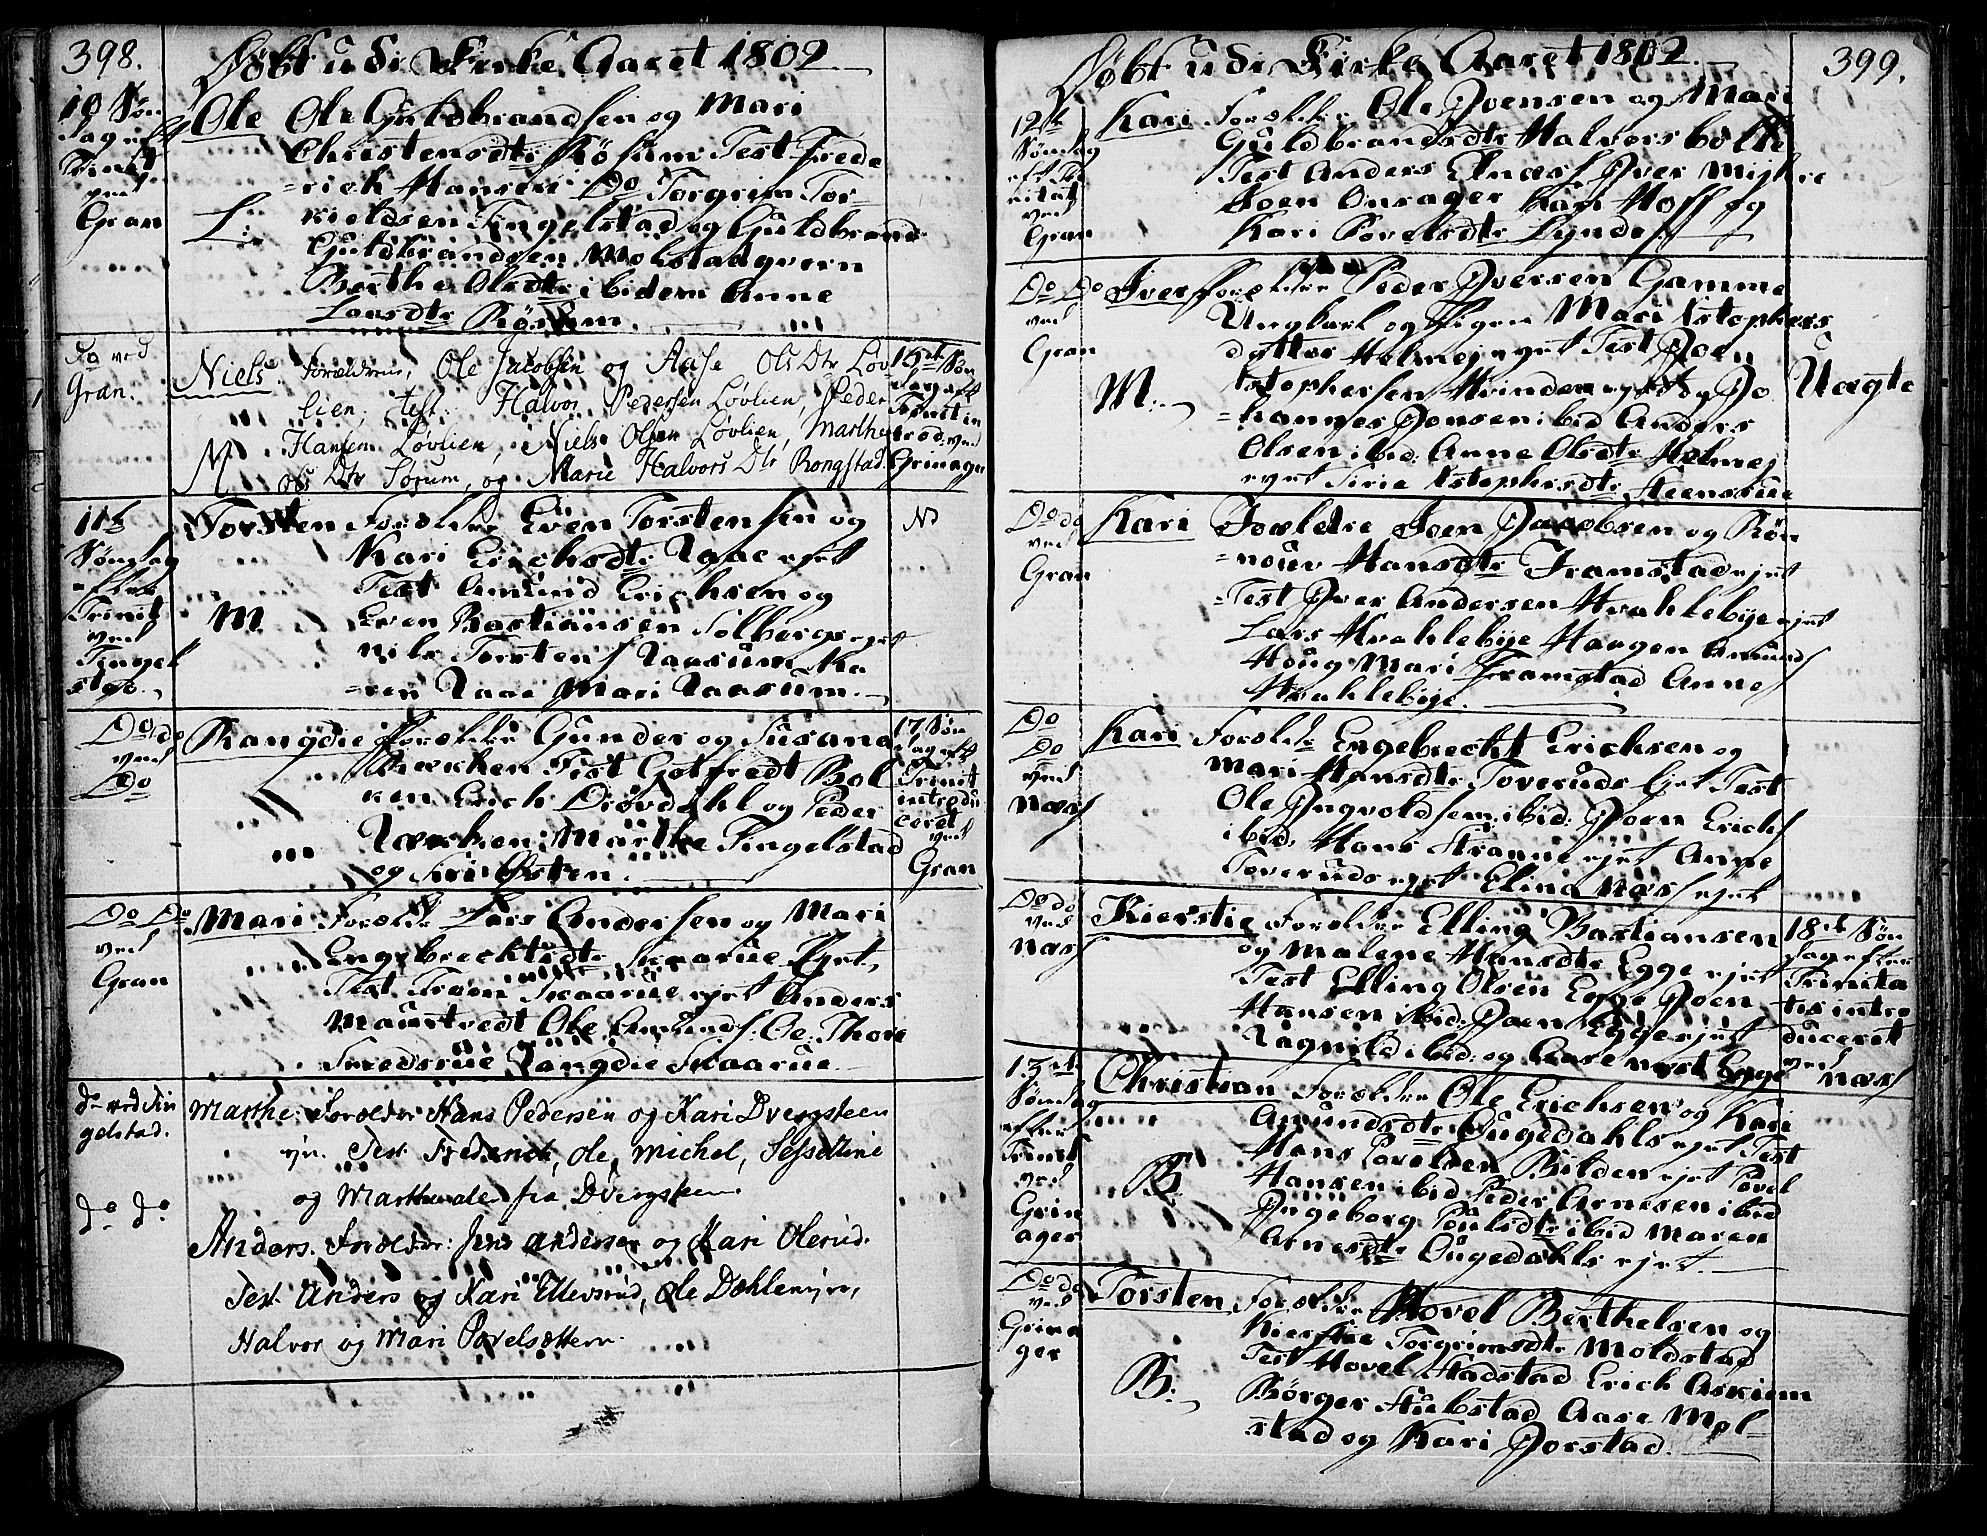 398.
Døbt udi Kirke Aaret 1802
10 Søn
dag eft
Trinit
ved
Gran
Ole Ole Guldbrandsen og Mari
Christensdtr Røsum Test Frede
=rich Hansen Do Torgrim Tor-
kieldsen Tingelstad og Guldbrand
L:
Guldbrandsen Molstadqvern
Berthe Olsdtr ibidem Anne
Larsdtr Røsum
Do ved
Gran.
Niels. Forældrene, Ole Jacobsen og Aase Ols Dtr Løv-
lien. test. Halvor Pedersen Løvlien, Peder
Hansen Løvlien, Niels Olsen Løvlien, Marthe
M
Ols Dtr Sørum, og Marie Halvors Dtr Rongstad.
16de Søn
dag eft
Trinit in
trod. ved
Grinager
11te
Søndag
efter
Trinit
ved
Tingel
stad
Torsten Forældre Even Torstensen og
Kari Erichsdtr Raae ejet
Test Amund Erichsen og
M
Even Bastiansen Solbergs ejet
Nils Torstens Raasum Ka
=ren Raae Mari Raasum.
Do do
ved
Do
Rangdie Forældre Gunder og Susana
Test Gotfredt Bol
ken Erich Drøvdahl og Peder
Marthe Tingelstad
og Siri Østen.
17 Søn
dag eft
Trinit
introdu
ceret
ved
Gran
Do Do
ved
Gran
Mari Forældre Lars Andersen og Mari
Engebrecktsdtr Skaarue Ejet,
Test Troen Skaarue ejet Anders
Ole Amunds. Oe: Thore
Smedsrue Rangdie Skaarue.
do ved Tin
gelstad.
Marthe. Forældre Hans Pedersen og Kari Dvergsteen
ejn. Test Frederick, Ole, Michel,
og Marthe alle fra Dvergsteen.
do do
Anders. Forældre: Jens Andersen og Kari Olerud.
Test. Anders og Kari Ellevsrud, Ole Dahlemyre,
Halvor og Mari Povelsættern.
Døbt udi Kirke Aaret 1802.
399.
12te
Søndag
eft Tri
nitat
ved
Gran
Kari Forældre Ole Joensen og Mari
Guldbrandsdtr Halvorsbolte
Test Anders Elnæs Iver
Joen Onsager Kari Hoff og
Kari Povelsdtr Lynde
Do Do
ved
Gran
Iver Forældre Peder Iversen Gamme
Ungkarl og Pigen Mari Kstophers
datter Helmej ejet Test Joen
M.
Kstophersen Hvinden ejet og Jo
=hannes Jensen ibid Anders
Olsen ibid. Anne Olsdtr Helmej
ejet Sirie Kstophersdtr Steensrue
Uægte
Do do
ved
Gran
Kari Forældre Joen Jacobsen og Røn
=nouv Hansdtr Framstad ejet
=Test Iver Andersen Hvahlebye ejet
Lars Hvahlebye Haagen Amunds
Houg Mari Framstad Anne
Hvahlebye.
Do
Do
ved
Næss
Kari Forældre Engebrecht Erichsen og
Mari Hansdtr Toveruds Ejet Test
Ole Ingvoldsen ibid: Joen Erichs
ibid. Hans Stranne ejet Anne
Toveruds ejet Elina Næss ejet
Do do
ved
Næss
Kierstie Forældre Elling Bastiansen
og Malene Hansdtr Egge ejet
Test Elling Olsen Egge Joen
Hansen ibid: Joen Egge ejet
Ragnild ibid: og Aase nest Egge
18de Søn
dag efter
Trinita
tis intro
duceret
ved Næss
13de
Søndag
efter
Trinit
ved
Grin
ager
Christian Forældre Ole Erichsen og Kari
Amundsdtr Ougedahls ejet Test
Hans Povelsen Bilden ejet Povel
B
Hansen ibid Peder Arnesen ibid
Ingeborg Poulsdtr ibid Maren
Arnesdtr Ougedahls ejet.
Do do
ved
Grina
ger
Torsten Forældre Hovel Berthelsen og
Kierstie Torgrimsdtr Moldstad
Test Hovel Hadstad Erich Askiem
B.
Børger Stubstad Aase Mol-
stad og Kari Jorstad.